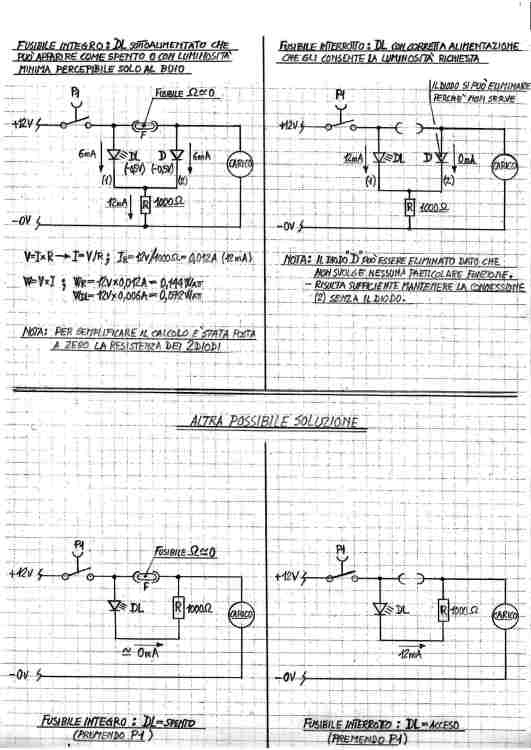 FUSIBILE INTEGRO: DL SOTTOALIMENTATO CHE
PUÒ APPARIRE COME SPENTO O CON LUMINOSITÀ
MINIMA PERCEPIBILE SOLO AL BUIO
P1
FUSIBILE Ω≃0
+12V
F
6mA
DL
(-0,5V)
D
(-0,5V)
6mA
CARICO
(1)
(2)
12mA
R
1000Ω
-0V
V=I×R → I=V/R; IR=12V/1000Ω=0,012A (12mA)
W=V×I ; WR=12V×0,012A=0,144WATT
WDL=12V×0,006A=0,072WATT
NOTA: PER SEMPLIFICARE IL CALCOLO E' STATA POSTA
A ZERO LA RESISTENZA DEI 2 DIODI
FUSIBILE INTERROTTO: DL CON CORRETTA ALIMENTAZIONE
CHE GLI CONSENTE LA LUMINOSITÀ RICHIESTA
IL DIODO SI PUÒ ELIMINARE
PERCHÈ NON SERVE
P1
+12V
12mA
DL
D
0mA
CARICO
(1)
(2)
R
1000Ω
-0V
NOTA: IL DIODO "D" PUÒ ESSERE ELIMINATO DATO CHE
NON SVOLGE NESSUNA PARTICOLARE FUNZIONE.
- RISULTA SUFFICIENTE MANTENERE LA CONNESSIONE
(2) SENZA IL DIODO.
ALTRA POSSIBILE SOLUZIONE
P1
FUSIBILE Ω≃0
+12V
F
DL
R
1000Ω
CARICO
≃ 0mA
-0V
FUSIBILE INTEGRO: DL=SPENTO
(PREMENDO P1)
P1
+12V
DL
R
1000Ω
CARICO
12mA
-0V
FUSIBILE INTERROTTO: DL=ACCESO
(PREMENDO P1)